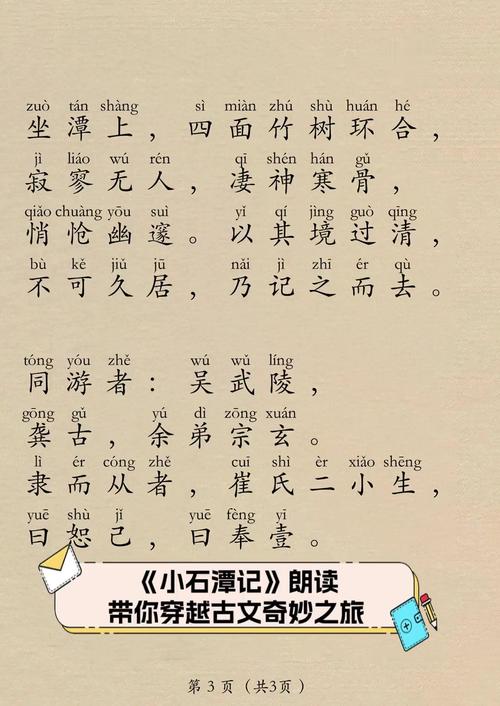 zuò tán shàng sì miàn zhú shù huán hé
坐潭上，四面竹树环合，
jì liáo wú rén qī shén hán gǔ
寂寥无人，凄神寒骨，
qiǎo chuàng yōu suì yǐ qí jìng guò qīng
悄怆幽邃。以其境过清，
bù kě jiǔ jū nǎi jì zhī ér qù
不可久居，乃记之而去。
tóng yóu zhě wú wǔ líng
同游者：吴武陵，
gōng gǔ yú dì zōng xuán
龚古，余弟宗玄。
lì ér cóng zhě cuī shì èr xiǎo shēng
隶而从者，崔氏二小生，
yuē shù jǐ yuē fèng yī
曰恕己，曰奉壹。
《小石潭记》朗读
带你穿越古文奇妙之旅
第 3 页（共3页）